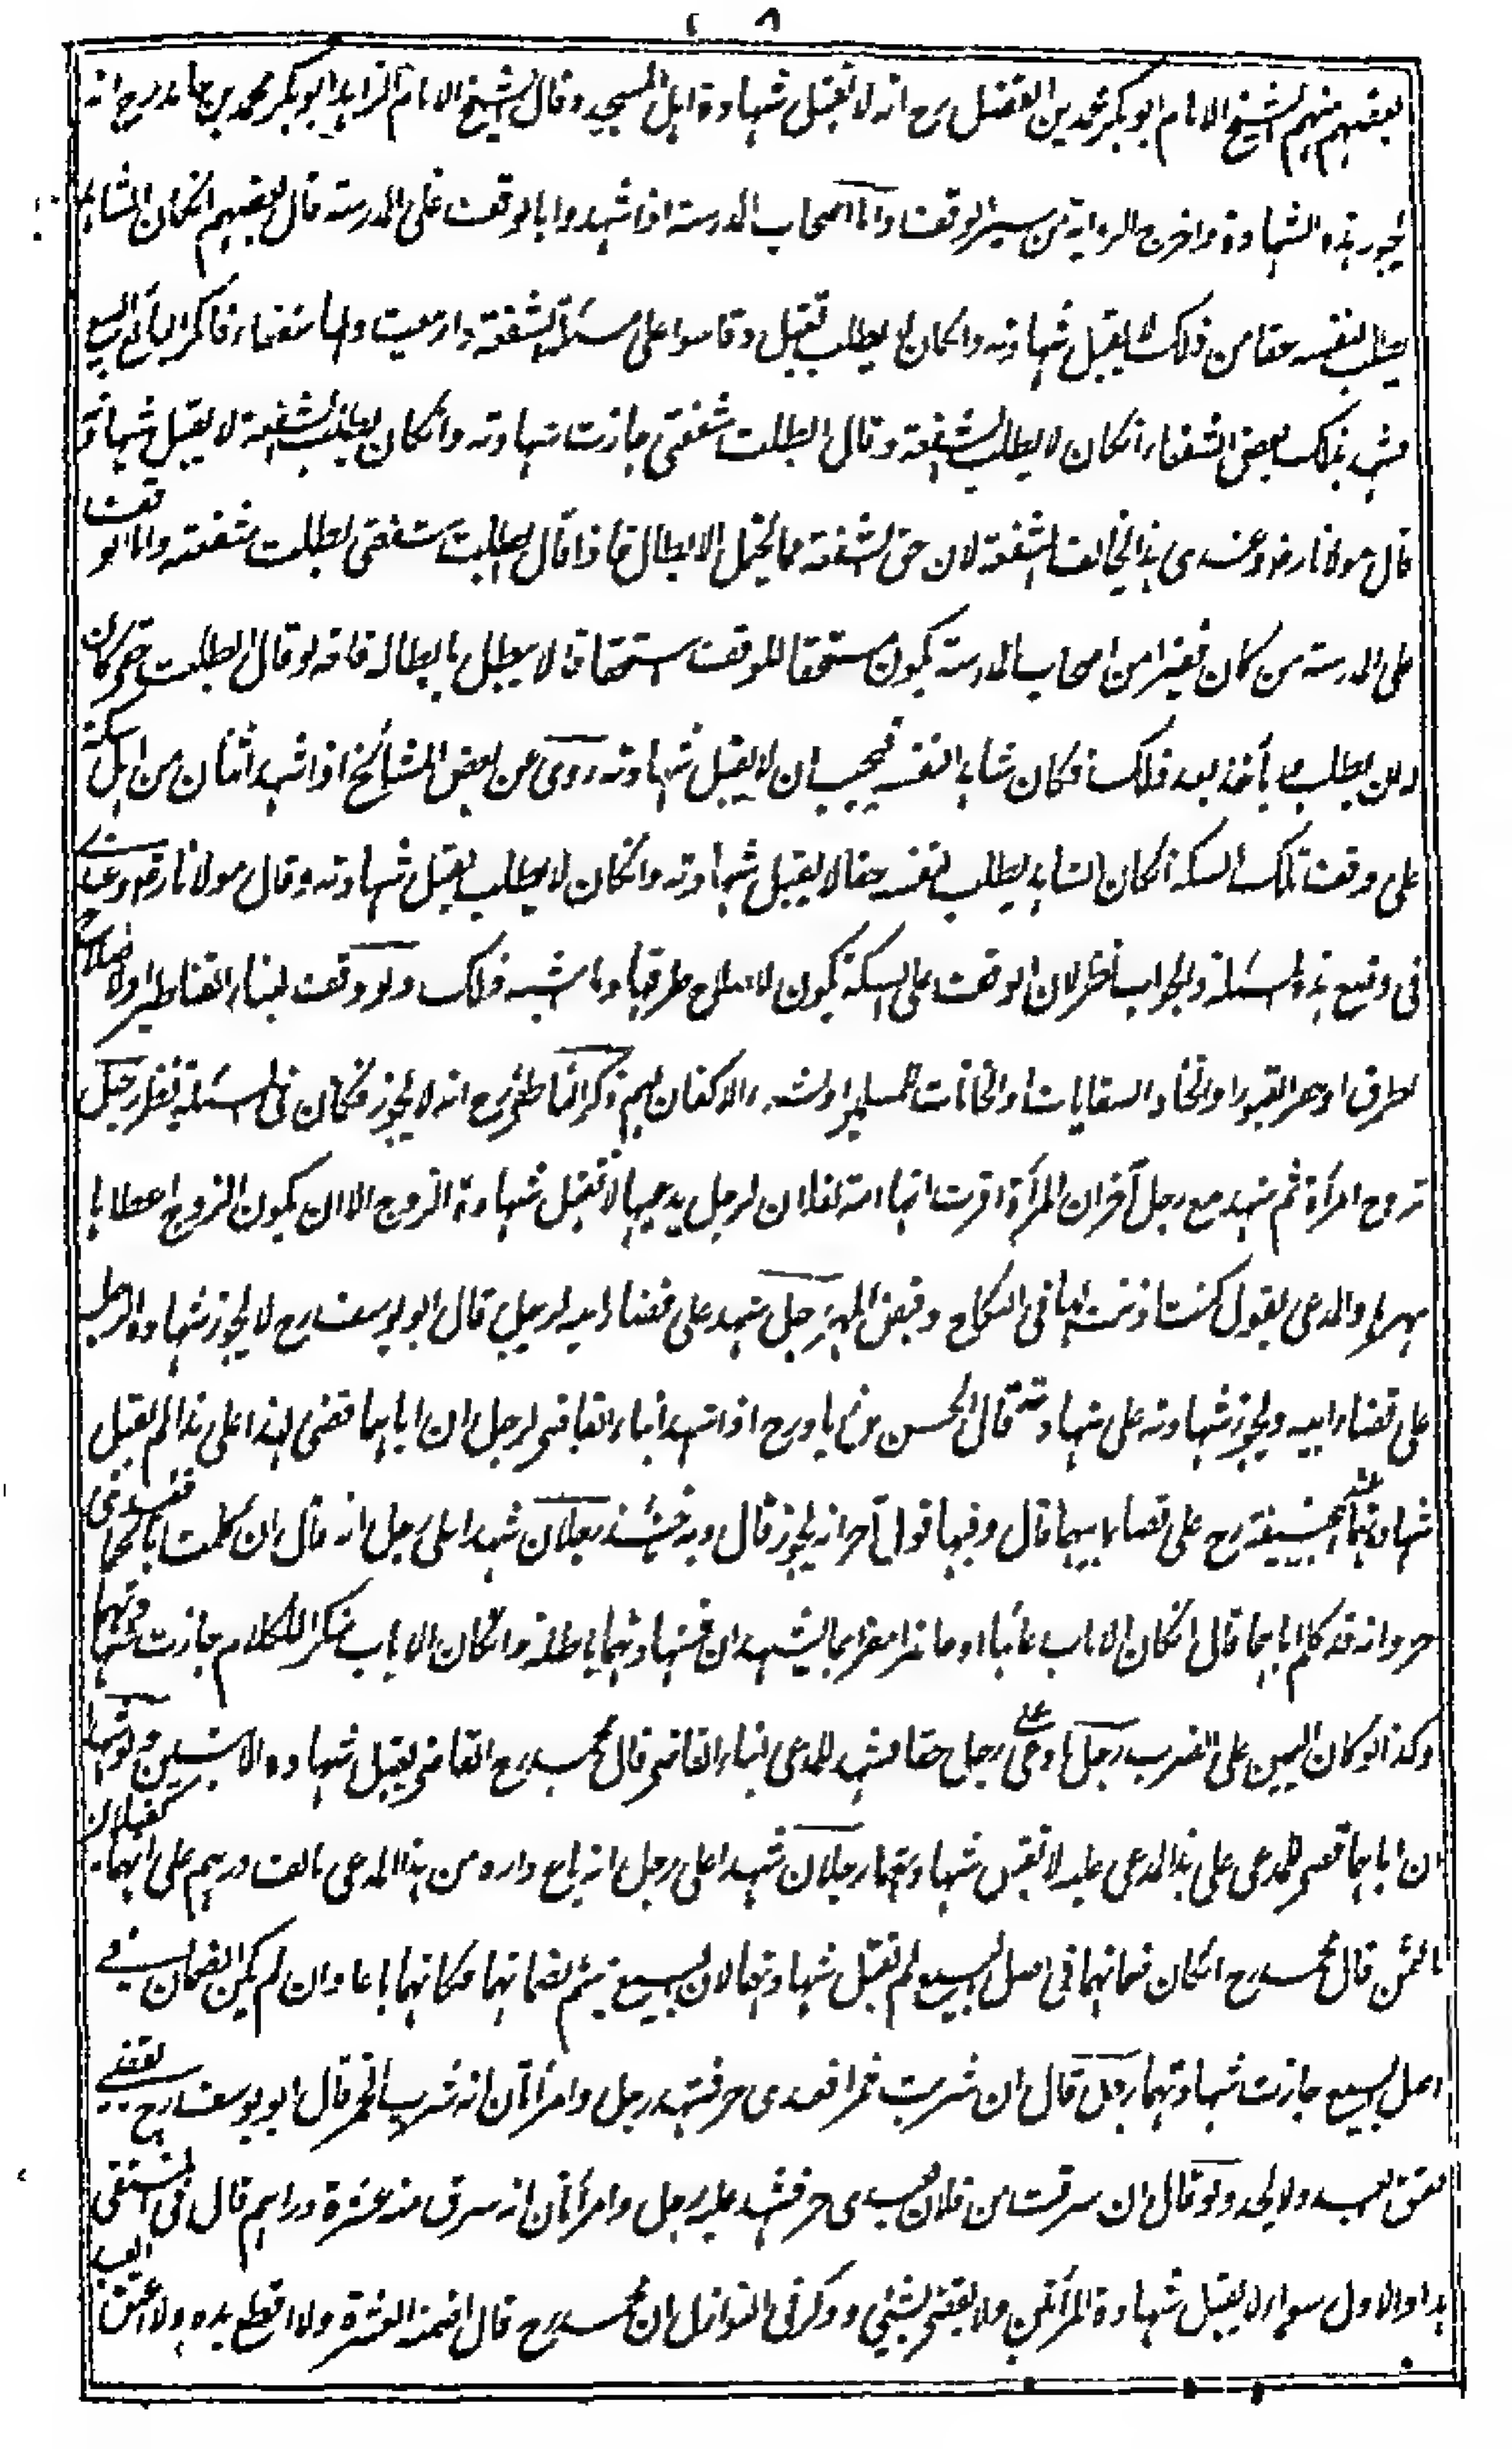 بعضهم منهم الشيخ الامام ابو بكر محمد بن الفضل رح انه لا تقبل شهادة اهل المسجد وقال الشيخ الامام الزاهد ابو بكر محمد بن حامد رح انه
يجوز هذه الشهادة واخرج الرواية من سير الوقف واما اصحاب المدرسة اذا شهدوا بالوقف على المدرسة قال بعضهم انكان الشاهد
يطلب لنفسه حقا من ذلك لا يقبل شهادته وانكان لا يطلب تقبل وقاسوا على مسئلة الشفعة دار بيعت ولها شفعاء فانكر البائع البيع
فشهد بذلك بعض الشفعاء انكان لا يطلب الشفعة وقال ابطلت شفعتي جازت شهادته وانكان يطلب الشفعة لا يقبل شهادته
قال مولانا رض وعندى هذا يخالف الشفعة لان حق الشفعة مما يحتمل الابطال فاذا قال ابطلت شفعتى بطلت شفعته واما الوقف
على المدرسة من كان فقيرا من اصحاب المدرسة يكون مستحقا للوقف استحقاقا لا يبطل بابطاله فانه لو قال ابطلت حقى كان
له ان يطلب وياخذ بعد ذلك فكان شاهدا لنفسه فيجب ان لا يقبل شهادته روى عن بعض المشائخ اذا شهد اثنان من اهل سكة
على وقف تلك السكة انكان الشاهد يطلب لنفسه حقا لا يقبل شهادته وانكان لا يطلب يقبل شهادته وقال مولانا رض وعندى
فى وضع هذه المسئلة والجواب نظر لان الوقف على السكة يكون لاصلاح طرقها وما اشبه ذلك ولو وقف لبناء القناطر او لاصلاح
الطرق او حفر القبور او اتخاذ السقايات او الخانات للمسلمين او لشراء الاكفان لهم ذكر الناطفى رح انه لا يجوز فكان فى المسئلة نظر رجل
تزوج امرأة ثم شهد مع رجل آخر ان المرأة اقرت انها امة لفلان لرجل يدعيها لا تقبل شهادة الزوج الا ان يكون الزوج اعطاها
مهرها والمدعى يقول كنت اذنت لها فى النكاح وقبض المهر رجل شهد على قضاء ابيه لرجل قال ابو يوسف رح لا يجوز شهادة الرجل
على قضاء ابيه ويجوز شهادته على شهادته قال الحسن بن زياد رح اذا شهد ابناء القاضى لرجل ان اباهما قضى لهذا على هذا لم يقبل
شهادتهما عند ابيحنيفة رح على قضاء ابيهما قال وفيها قول آخر انه يجوز قال وبه ناخذ رجلان شهدا على رجل انه قال ان كلمت اباكما فعبدى
حر وانه قد كلم اباهما قال انكان الاب غائبا او حاضرا مقرا بما يشهدان فشهادتهما باطلة وانكان الاب منكرا للكلام جازت شهادتهما
وكذا لو كان اليمين على الضرب رجل ادعى على رجل حقا فشهد للمدعى ابناء القاضى قال محمد رح القاضى يقبل شهادة الابنين ولو شهدا
ان اباهما قضى للمدعى على هذا المدعى عليه لا تقبل شهادتهما رجلان شهدا على رجل انه باع داره من هذا المدعى بالف درهم على انهما كفيلان
بالثمن قال محمد رح انكان ضمانهما فى اصل البيع لم تقبل شهادتهما لان البيع يتم بضمانهما فكانهما باعا وان لم يكن الضمان فى
اصل البيع جازت شهادتهما رجل قال ان شربت خمرا فعبدى حر فشهد رجل وامرأتان انه شرب الخمر قال ابو يوسف رح يقضى
بعتق العبد ولا يحد ولو قال ان سرقت من فلان فعبدى حر فشهد عليه رجل وامرأتان انه سرق منه عشرة دراهم قال فى المنتقى
هذا والاول سواء لا يقبل شهادة المرأتين ولا يقضى بشئ وذكر فى النوازل ان محمد رح قال اضمنه العشرة ولا اقطع يده ولا اعتق العبد